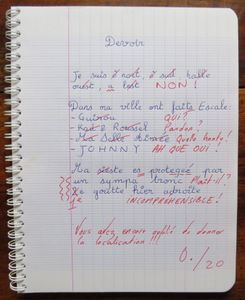 Devoir
Je suis à nort, à sud halle
ouest, a l'est NON !
Dans ma ville ont fatte Escale:
- QUI ?
- & Roussel Pardon ?
- Quelle honte !
- JOHNNY AH QUE OUI !
Ma est protegeé par
un sympa tronc Plait-il ?
Je goutte hier adroite
INCOMPRÉHENSIBLE !
Vous avez encore oublié de donner
la localisation !!!
0./20